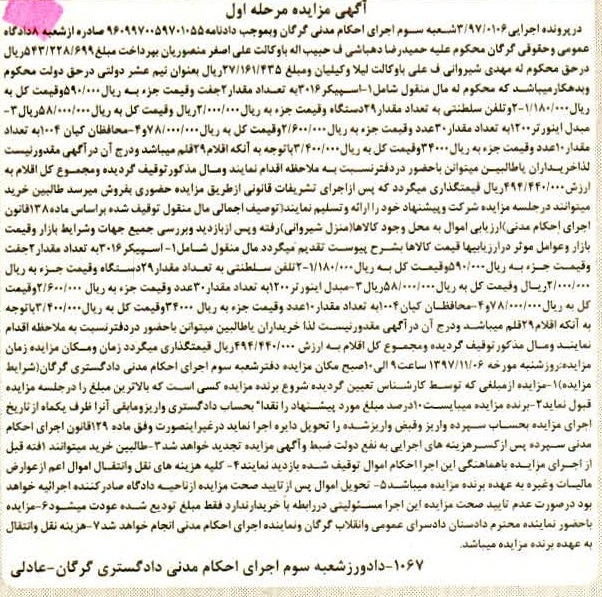 آگهی مزایده مرحله اول
در پرونده اجرایی ۳/۹۷/۰۱۰۶شعبه سوم اجرای احکام مدنی گرگان وبموجب دادنامه ۹۶۰۹۹۷۰۰۵۹۷۰۱۰۵۵ صادره ازشعبه ۸دادگاه
عمومی وحقوقی گرگان محکوم علیه حمیدرضا دهباشی ف حبیب اله باوکالت علی اصغر منصوریان بپرداخت مبلغ ۵۴۳/۲۲۸/۶۹۹ریال
درحق محکوم له مهدی شیروانی ف علی باوکالت لیلا وکیلیان ومبلغ ۲۷/۱۶۱/۴۳۵ریال بعنوان نیم عشر دولتی درحق دولت محکوم
وبدهکارمیباشد که محکوم له مال منقول شامل۱-اسپیکر۳۰۱۶به تعداد مقدار۲جفت وقیمت جزء به ریال۵۹۰/۰۰۰وقیمت کل به
ریال۱/۱۸۰/۰۰۰-۲وتلفن سلطنتی به تعداد مقدار۲۹دستگاه وقیمت جزء به ریال۲/۰۰۰/۰۰۰ریال وقیمت کل به ریال۵۸/۰۰۰/۰۰۰ریال۳-
مبدل اینورتر۱۲۰۰به تعداد مقدار۳۰عدد وقیمت جزء به ریال۲/۶۰۰/۰۰۰وقیمت کل به ریال۷۸/۰۰۰/۰۰۰و۴-محافظان کیان ۱۰۰۴به تعداد
مقدار۱۰عدد وقیمت جزء به ریال۳۴۰۰۰۰وقیمت کل به ریال۳/۴۰۰/۰۰۰باتوجه به آنکه اقلام۲۹قلم میباشد ودرج آن درآگهی مقدورنیست
لذاخریداران یاطالبین میتوانن باحضور دردفترنسبت به ملاحظه اقدام نمایند ومال مذکورتوقیف گردیده ومجموع کل اقلام به
ارزش ۴۹۴/۴۴۰/۰۰۰ریال قیمتگذاری میگردد که پس ازاجرای تشریفات قانونی ازطریق مزایده حضوری بفروش میرسد طالبین خرید
میتوانند درجلسه مزایده شرکت وپیشنهاد خود را ارائه وتسلیم نمایند(توصیف اجمالی مال منقول توقیف شده براساس ماده۱۳۸قانون
اجرای احکام مدنی)ارزیابی اموال به محل وجود کالاها(منزل شیروانی)رفته وپس ازبازدید وبررسی جمیع جهات وشرایط بازار وقیمت
بازار وعوامل موثر درارزیابیها قیمت کالاها بشرح پیوست تقدیم میگردد مال منقول شامل۱-اسپیکر۳۰۱۶به تعداد مقدار۲جفت
وقیمت جزء به ریال۵۹۰/۰۰۰وقیمت کل به ریال۱/۱۸۰/۰۰۰-۲تلفن سلطنتی به تعداد مقدار۲۹دستگاه وقیمت جزء به ریال
۲/۰۰۰/۰۰۰ریال وقیمت کل به ریال۵۸/۰۰۰/۰۰۰ریال۳-مبدل اینورتر۱۲۰۰به تعداد مقدار۳۰عدد وقیمت جزء به ریال۲/۶۰۰/۰۰۰وقیمت
کل به ریال۷۸/۰۰۰/۰۰۰و۴-محافظان کیان۱۰۰۴به تعداد مقدار۱۰عدد وقیمت جزء به ریال ۳۴۰۰۰۰وقیمت کل به ریال۳/۴۰۰/۰۰۰باتوجه
به آنکه اقلام۲۹قلم میباشد ودرج آن درآگهی مقدورنیست لذا خریداران یاطالبین میتوانن باحضور دردفترنسبت به ملاحظه اقدام
نمایند ومال مذکورتوقیف گردیده ومجموع کل اقلام به ارزش ۴۹۴/۴۴۰/۰۰۰ریال قیمتگذاری میگردد زمان ومکان مزایده زمان
مزایده:روزشنبه مورخه ۱۳۹۷/۱۱/۰۶ ساعت۹ الی۱۰صبح مکان مزایده دفترشعبه سوم اجرای احکام مدنی دادگستری گرگان(شرایط
مزایده)۱-مزایده ازمبلغی که توسط کارشناس تعیین گردیده شروع برنده مزایده کسی است که بالاترین مبلغ را درجلسه مزایده
قبول نماید۲-برنده مزایده میبایست۱۰درصد مبلغ مورد پیشنهاد را نقدا" بحساب دادگستری واریزومابقی آنرا ظرف یکماه ازتاریخ
اجرای مزایده بحساب سپرده واریز وقبض واریزشده را تحویل دایره اجرا نماید درغیراینصورت وفق ماده ۱۲۹قانون اجرای احکام
مدنی سپرده پس ازکسرهزینه های اجرایی به نفع دولت ضبط وآگهی مزایده تجدید خواهد شد۳-طالبین خرید میتوانند ۱فته قبل
از اجرای مزایده باهماهنگی این اجرا احکام اموال توقیف شده بازدید نمایند۴- کلیه هزینه های نقل وانتقال اموال اعم ازعوارض
مالیات وغیره به عهده برنده مزایده میباشد۵- تحویل اموال پس ازتایید صحت مزایده ازناحیه دادگاه صادرکننده اجرائیه خواهد
بود درصورت عدم تایید صحت مزایده این اجرا مسئولیتی دررابطه با خریدارندارد فقط مبلغ تودیع شده عودت میشود۶-مزایده
باحضور نماینده محترم دادستان دادسرای عمومی وانقلاب گرگان ونماینده اجرای احکام مدنی انجام خواهد شد۷-هزینه نقل وانتقال
به عهده برنده مزایده میباشد.
۱۰۶۷-دادورزشعبه سوم اجرای احکام مدنی دادگستری گرگان-عادلی